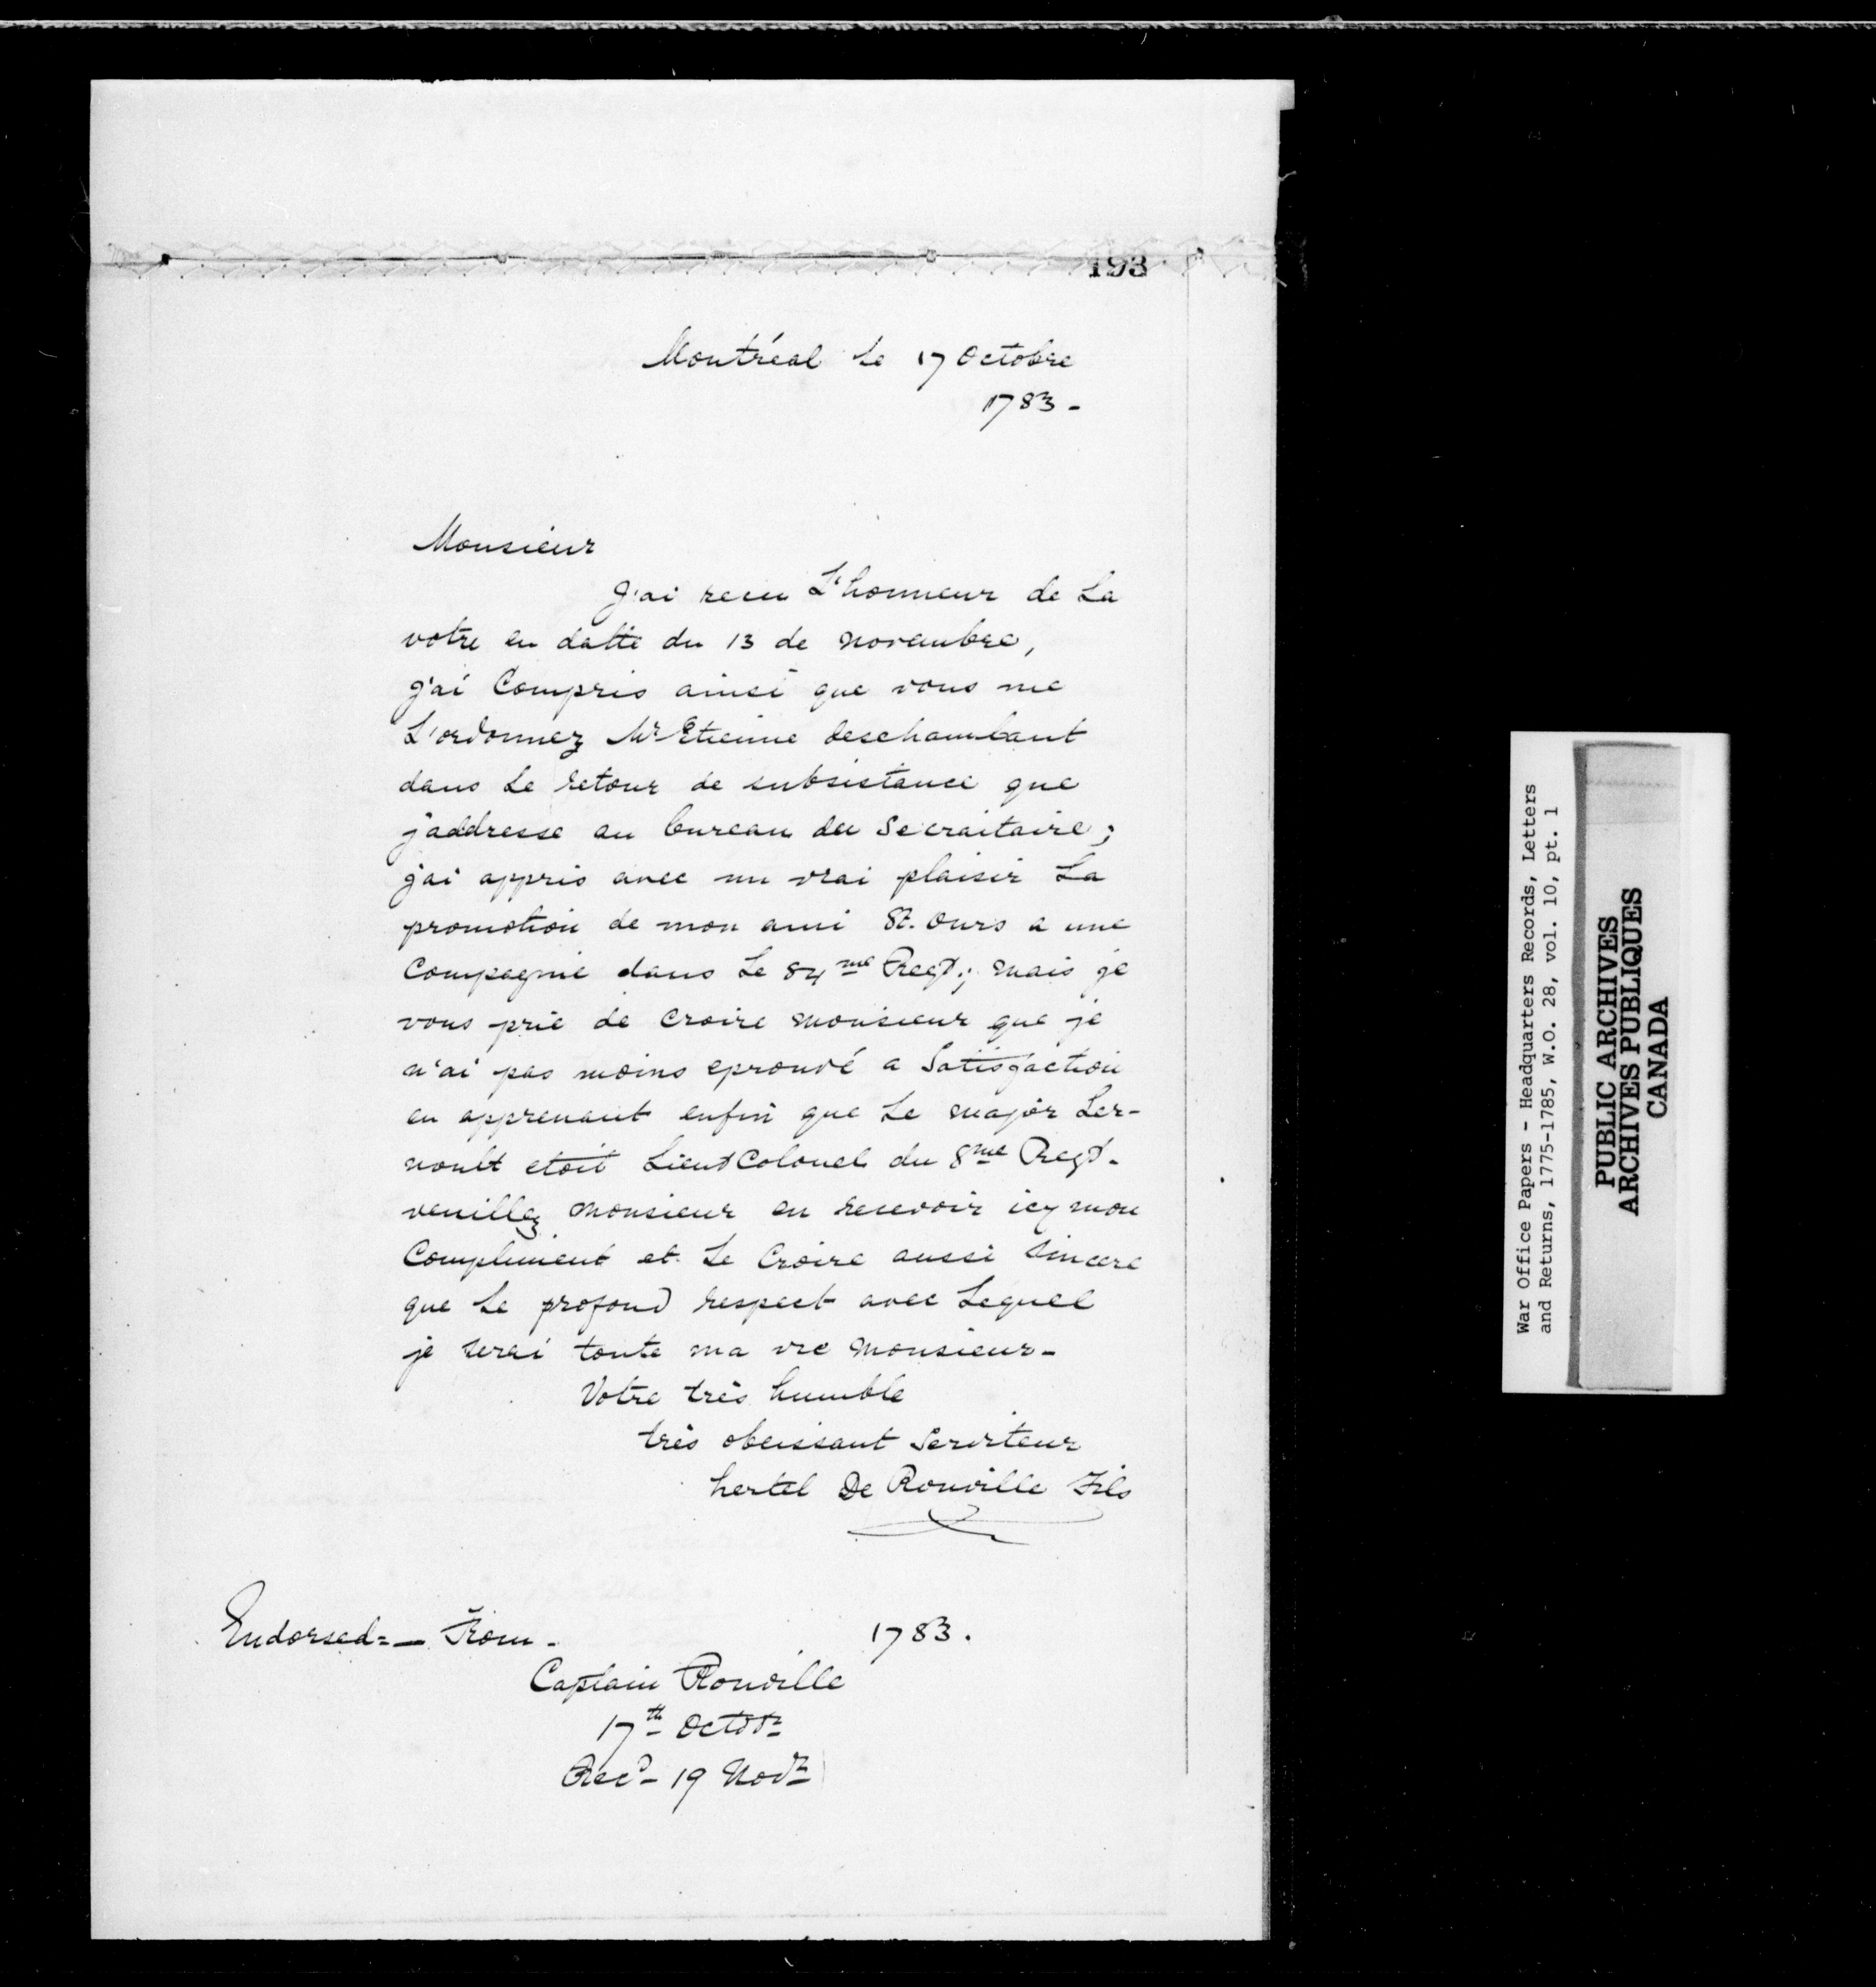 193
Montréal Le 17 Octobre
1783 -
Monsieur
J'ai recu L'honneur de La
votre en datte du 13 de novembre,
j'ai Compris ainsi que vous me
L'ordonnez Mr Etienne deschambaut
dans Le retour de subsistance que
j'addresse au bureau du Secraitaire;
j'ai appris avec un vrai plaisir La
promotion de mon ami St. Ours a une
Compagnie dans Le 84me Regt; mais je
vous prie de croire monsieur que je
n'ai pas moins eprouvé a Satisfaction
en apprenant enfin que Le major Ler-
noult etoit Lieut Colonel du 8me Regt.
veuillez monsieur en recevoir icy mon
Compliment et Le Croire aussi sincere
que Le profond respect avec Lequel
je serai toute ma vie monsieur -
Votre très humble
très obeissant Serviteur
hertel De Rouville Fils
Endorsed = — From - 1783.
Captain Rouville
17th Octbr
Recd - 19 Novr
War Office Papers - Headquarters Records, Letters
and Returns, 1775-1785, W.O. 28, vol. 10, pt. 1
PUBLIC ARCHIVES
ARCHIVES PUBLIQUES
CANADA